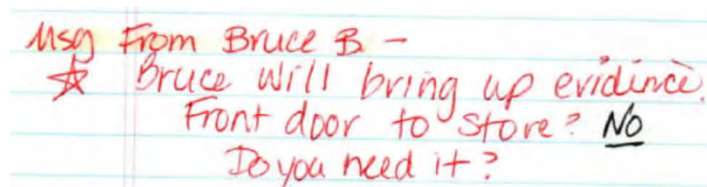 Msg From Bruce B -
☆ Bruce will bring up evidince.
Front door to store? NO
Do you need it?